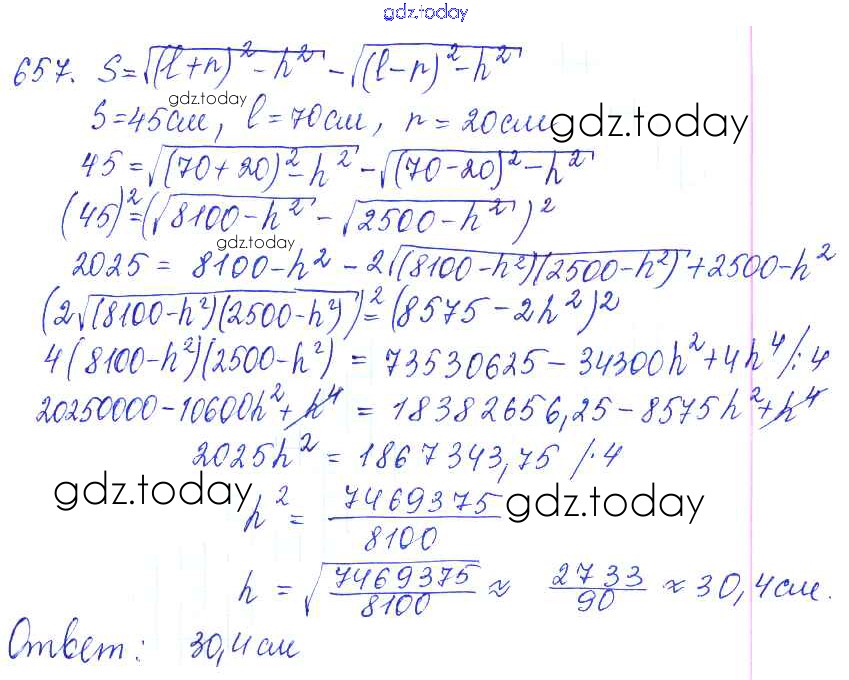 gdz.today
657. S=√((l+r)²-h²) -√((l-r)²-h²)
gdz.today
S=45см, l=70см, r=20см
gdz.today
45=√((70+20)²-h²) -√((70-20)²-h²)
(45)²=(√(8100-h²) -√(2500-h²))²
gdz.today
2025 = 8100-h² -2√((8100-h²)(2500-h²)) +2500-h²
(2√((8100-h²)(2500-h²)))²=(8575-2h²)²
4(8100-h²)(2500-h²) = 73530625-34300h²+4h⁴ /:4
20250000-10600h²+h⁴ = 18382656,25-8575h²+h⁴
2025h² = 1867343,75 /·4
gdz.today
h² = 7469375/8100
gdz.today
h = √(7469375/8100) ≈ 2733/90 ≈ 30,4см.
Ответ: 30,4см